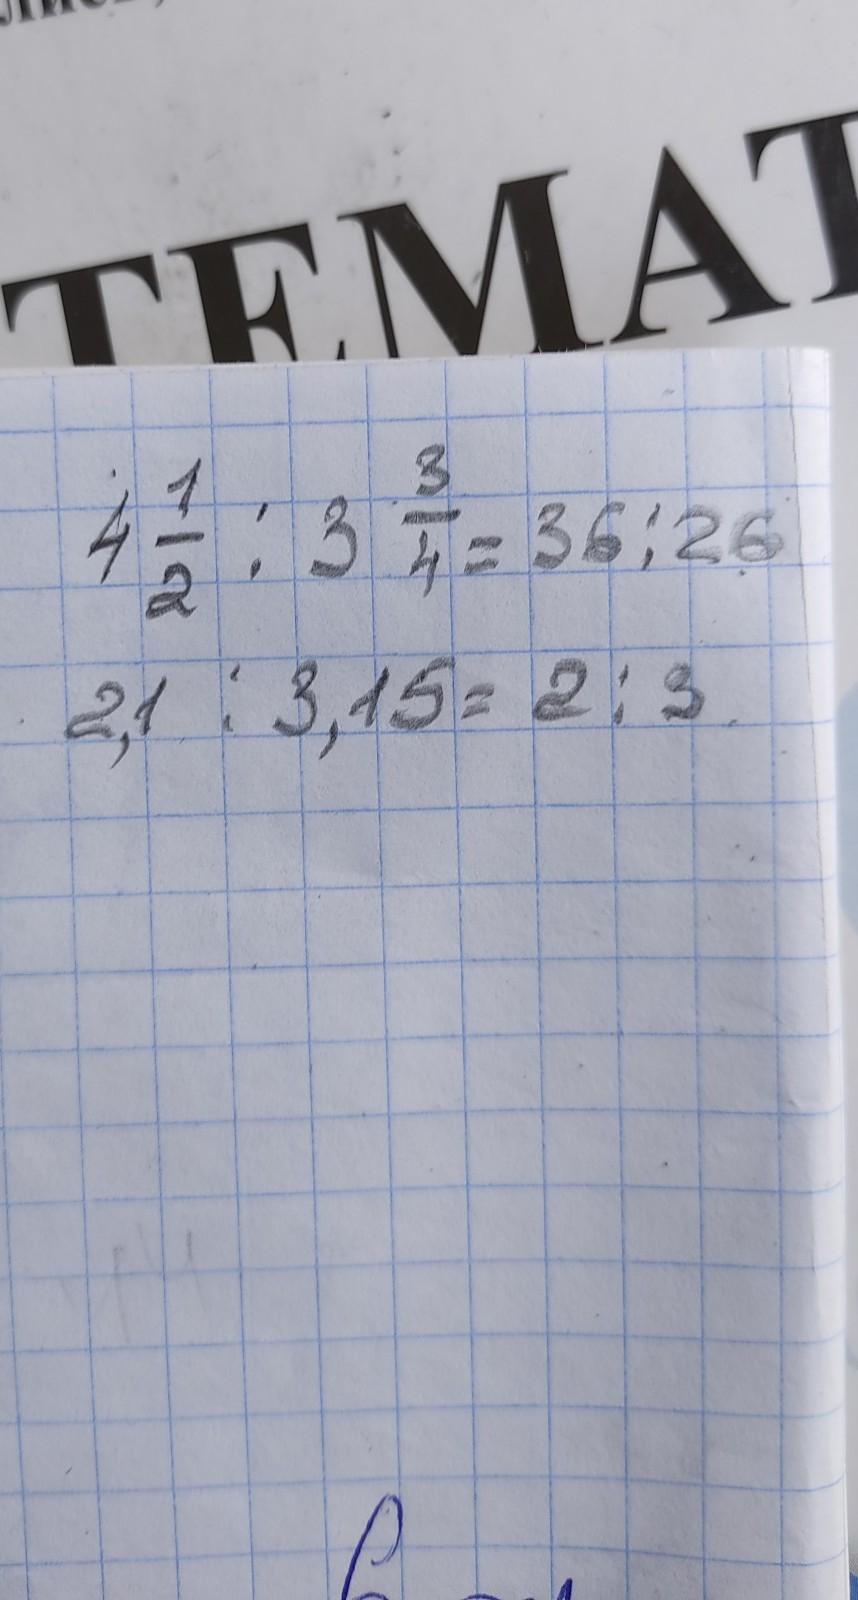 ТЕМАТ
4 1/2 : 3 3/4 = 36 : 26
2,1 : 3,15 = 2 : 3